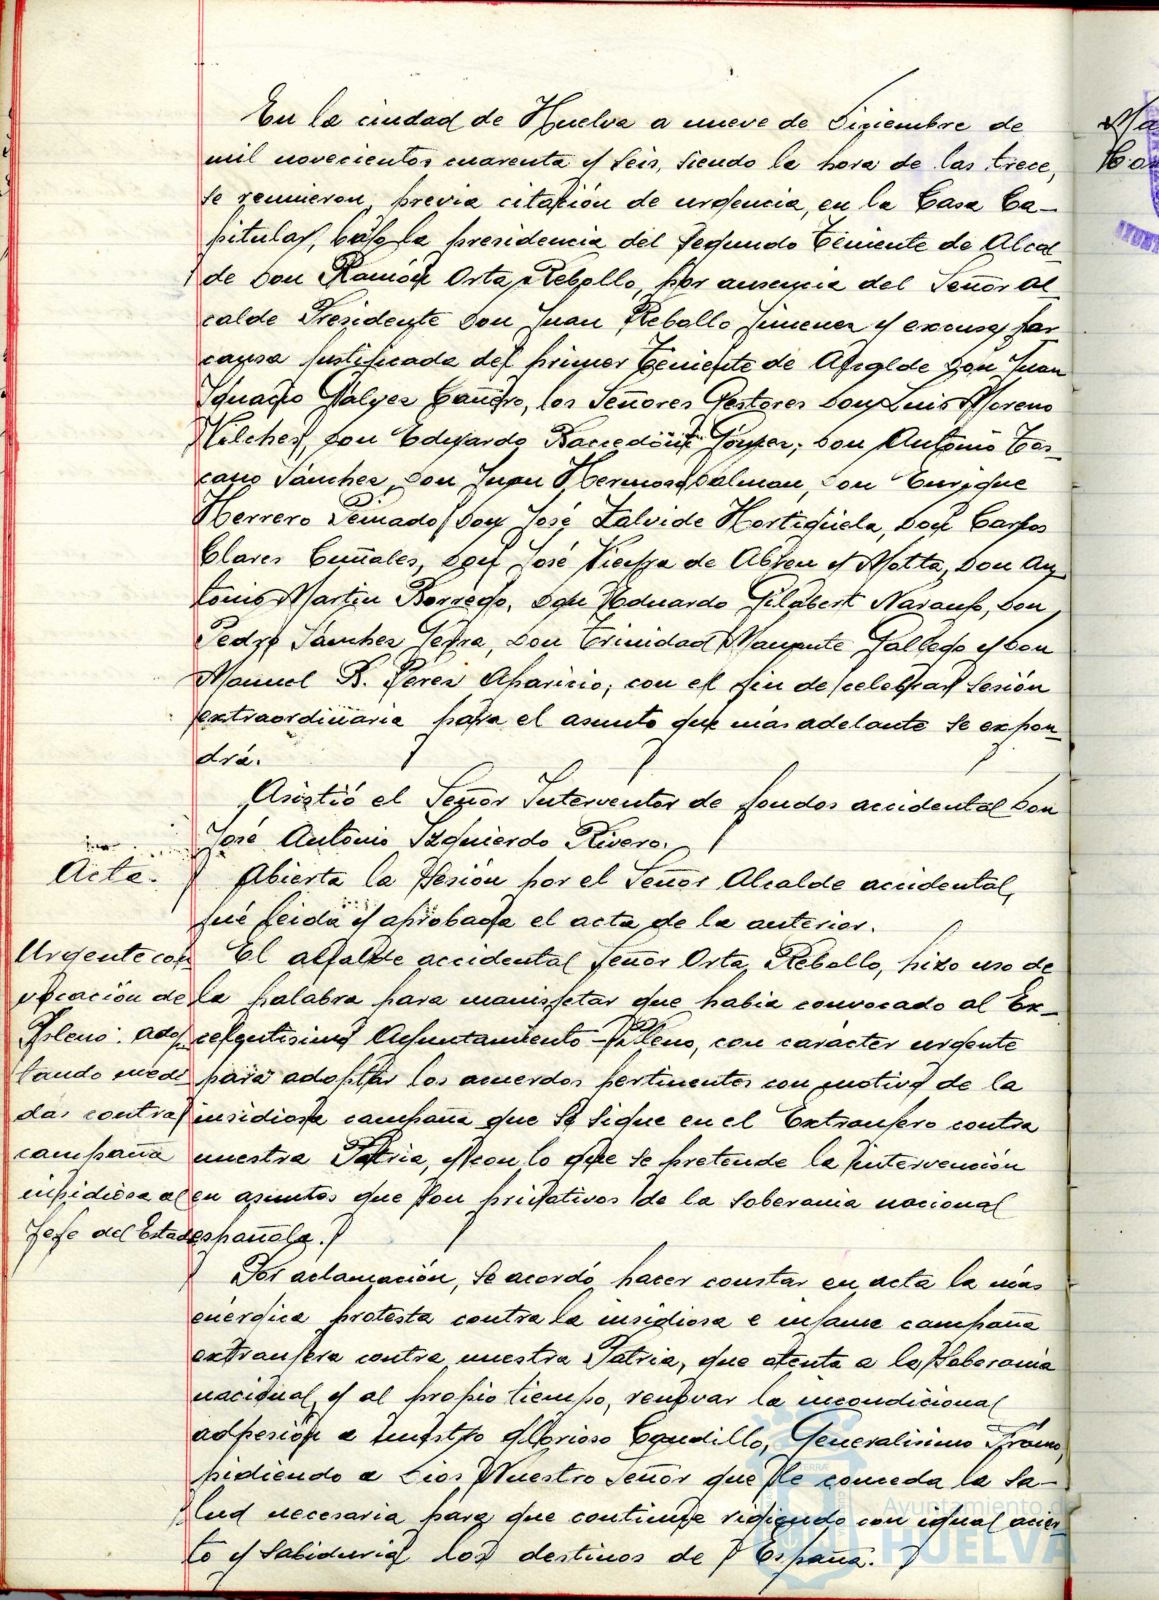 En la ciudad de Huelva a nueve de Diciembre de
mil novecientos cuarenta y seis, siendo la hora de las trece,
se reunieron, previa citación de urgencia, en la Casa Ca-
pitular, bajo la presidencia del Segundo Teniente de Alcal-
de Don Ramón Orta Rebollo, por ausencia del Señor Al-
calde Presidente Don Juan Rebollo Jimenez y excusa por
causa justificada del primer Teniente de Alcalde Don Juan
Ignacio Galvez Cañero, los Señores Gestores Don Luis Moreno
Vilches, Don Eduardo Gomez; Don Antonio Tos-
cano Sánchez, Don Juan Hermoso Dalman, Don Enrique
Herrero Peinado, Don José Zalvide Hortigüela, Don Carlos
Clares Cuñales, Don José Vieyra de Abreu y Motta, Don An-
tonio Martin Borrego, Don Eduardo Gilabert Naranjo, Don
Pedro Sánchez Serra, Don Trinidad Gallego y Don
Manuel B. Pérez Aparicio; con el fin de celebrar sesión
extraordinaria para el asunto que más adelante se expon-
drá.
Asistió el Señor Interventor de fondos accidental Don
José Antonio Izquierdo Rivero.
Acta.
Abierta la Sesión por el Señor Alcalde accidental,
fué leida y aprobada el acta de la anterior.
Urgente con
vocación de
Pleno: adop
tando medi
das contra
campaña
insidiosa al
Jefe del Estado
El alcalde accidental Señor Orta Rebollo, hizo uso de
la palabra para manisfetar que habia convocado al Ex-
celentisimo Ayuntamiento-Pleno, con carácter urgente
para adoptar los acuerdos pertinentes con motivo de la
insidiosa campaña que se sigue en el Extranjero contra
nuestra Patria, y con lo que se pretende la intervención
en asuntos que son privativos de la soberania nacional
española.
Por aclamación, se acordó hacer constar en acta la más
enérgica protesta contra la insidiosa e infame campaña
extranjera contra nuestra Patria, que atenta a la Soberania
nacional, y al propio tiempo, renovar la incondicional
adhesión a nuestro glorioso Caudillo, Generalisimo Franco,
pidiendo a Dios Nuestro Señor que le conceda la sa-
lud necesaria para que continue rigiendo con igual acier-
to y sabiduria los destinos de España.
Ayuntamiento de
HUELVA